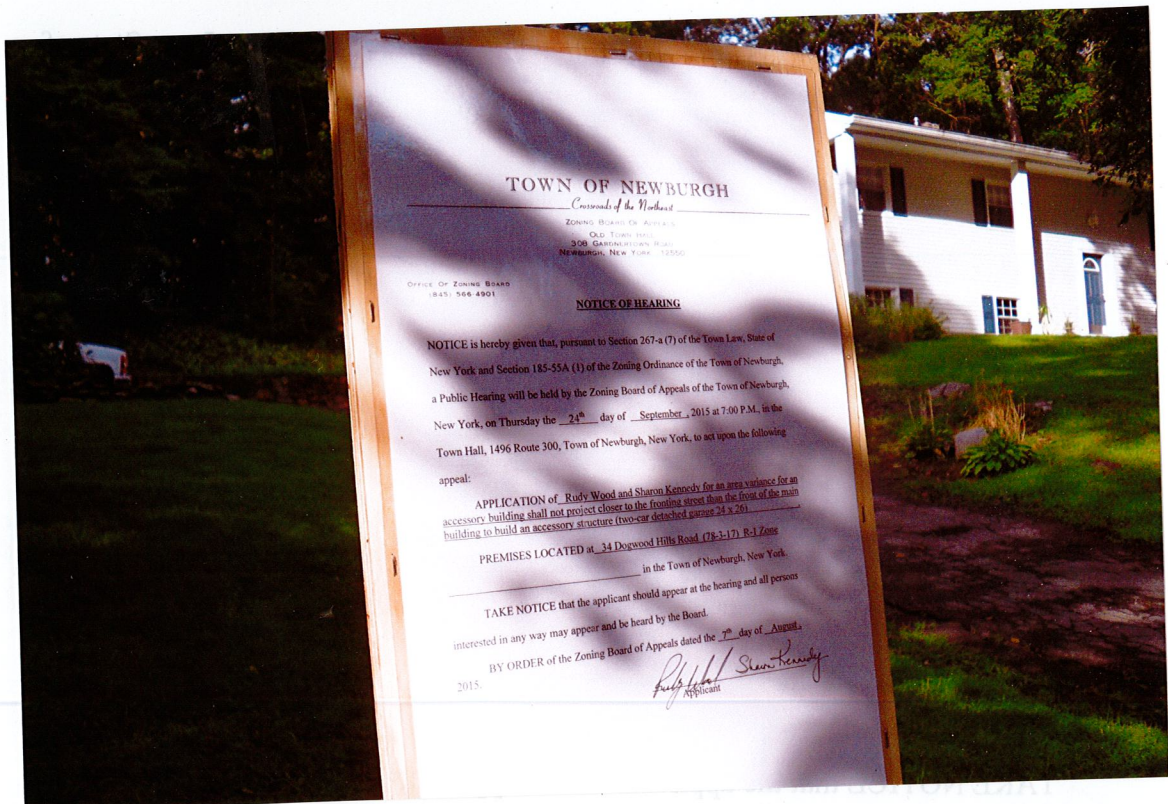 TOWN OF NEWBURGH
Crossroads of the Northeast
ZONING BOARD OF APPEALS
OLD TOWN HALL
308 GARDNERTOWN ROAD
NEWBURGH, NEW YORK 12550
OFFICE OF ZONING BOARD
(845) 566-4901
NOTICE OF HEARING
NOTICE is hereby given that, pursuant to Section 267-a (7) of the Town Law, State of
New York and Section 185-55A (1) of the Zoning Ordinance of the Town of Newburgh,
a Public Hearing will be held by the Zoning Board of Appeals of the Town of Newburgh,
New York, on Thursday the 24th day of September, 2015 at 7:00 P.M., in the
Town Hall, 1496 Route 300, Town of Newburgh, New York, to act upon the following
appeal:
APPLICATION of Rudy Wood and Sharon Kennedy for an area variance for an
accessory building shall not project closer to the fronting street than the front of the main
building to build an accessory structure (two-car detached garage 24 x 26)
PREMISES LOCATED at 34 Dogwood Hills Road (78-3-17) R-1 Zone
in the Town of Newburgh, New York.
TAKE NOTICE that the applicant should appear at the hearing and all persons
interested in any way may appear and be heard by the Board.
BY ORDER of the Zoning Board of Appeals dated the 7th day of August,
2015.
Rudy Wood Sharon Kennedy
Applicant